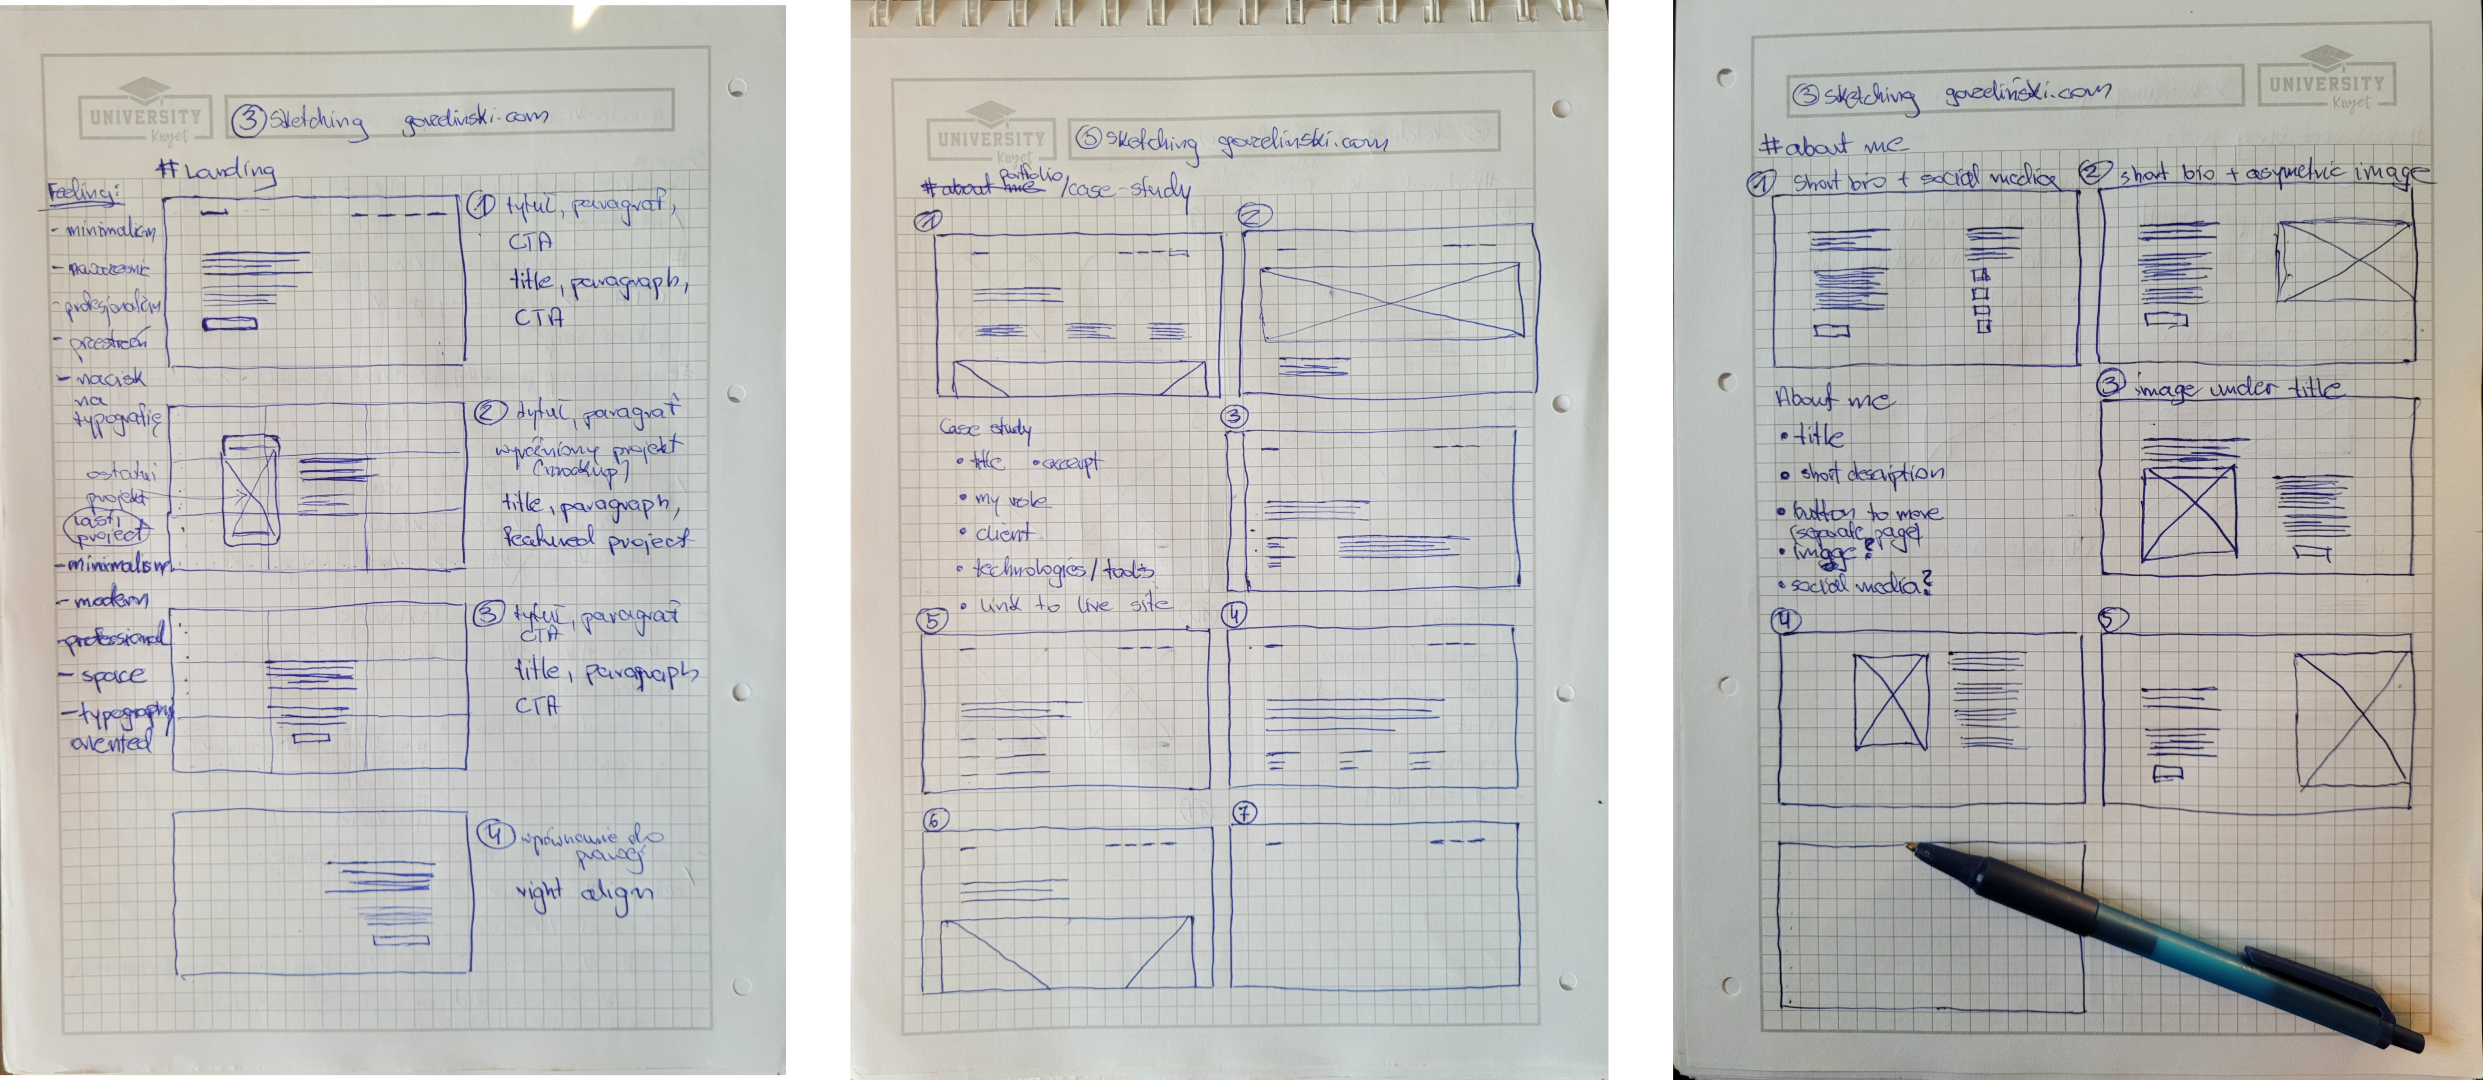 UNIVERSITY
Kayet
③ Sketching gorzelinski.com
# Landing
Feeling:
- minimalizm
- profesjonalizm
- przestrzeń
- nacisk
na
typografię
ostatni
projekt
last
project
- minimalism
- modern
- professional
- space
- typography
oriented
① tytuł, paragraf,
CTA
title, paragraph,
CTA
② tytuł, paragraf
wyróżniony projekt
(mockup)
title, paragraph,
featured project
③ tytuł, paragraf
CTA
title, paragraph
CTA
④ wyrównanie do
prawej
right align
UNIVERSITY
Kayet
③ sketching gorzelinski.com
# about me portfolio/case-study
①
②
Case study
• title • excerpt
• my role
• client
• technologies/tools
• link to live site
③
⑤
④
⑥
⑦
③ sketching gorzelinski.com
UNIVERSITY
Kayet
# about me
① Short bio + social media
② short bio + asymetric image
About me
• title
• short description
• button to more
(separate page)
• image?
• social media?
③ image under title
④
⑤